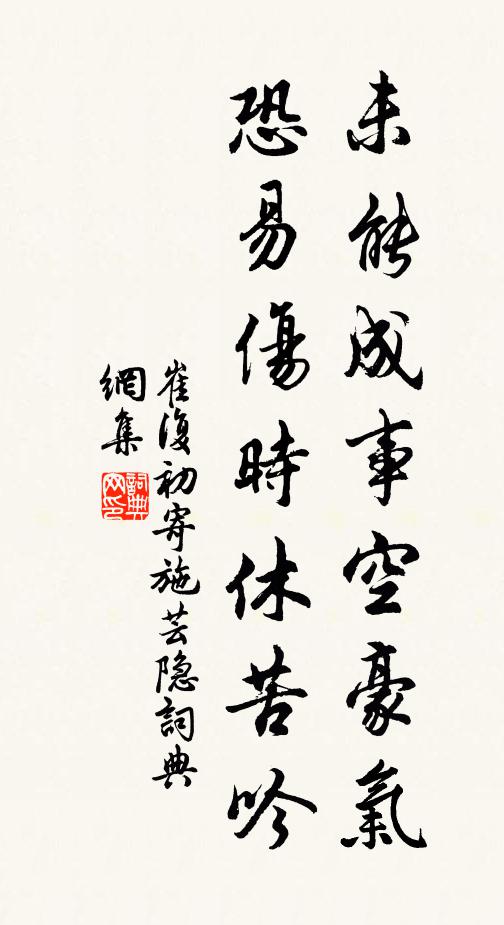 未能成事空豪氣
恐易傷時休苦吟
崔復初寄施芸隱詞典
網集
詞典
网印